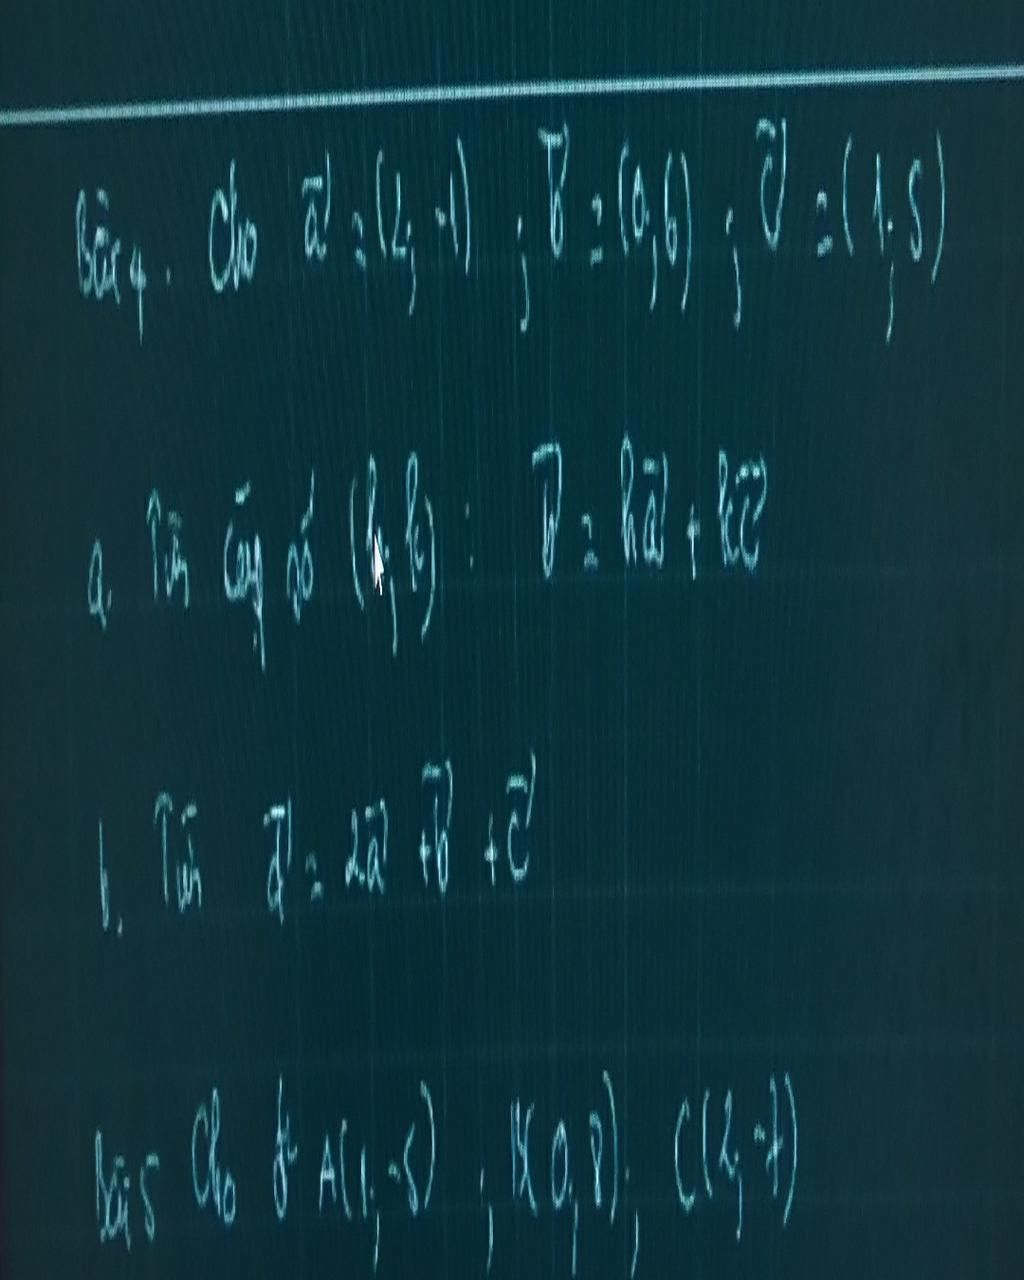 Bài 4. Cho a⃗ = (2; -1) ; b⃗ = (0; 6) ; c⃗ = (1; 5)
a. Tìm cặp số (h; k) : b⃗ = ha⃗ + kc⃗
b. Tìm d⃗ = 2a⃗ + b⃗ + c⃗
Bài 5 Cho A(1; -5) ; (0; 8) ; C(2; -7)